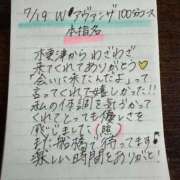 7/19 W・アヴァンザ 100分コース
本指名
木更津からわざわざ
来てくれてありがとう♡
会いに来たんだよぉって
言ってくれて嬉しかった!!
私の体調を気づかって
くれてとっても優しさを
感じました(照)
また船橋で待ってます!
楽しい時間をありがと!